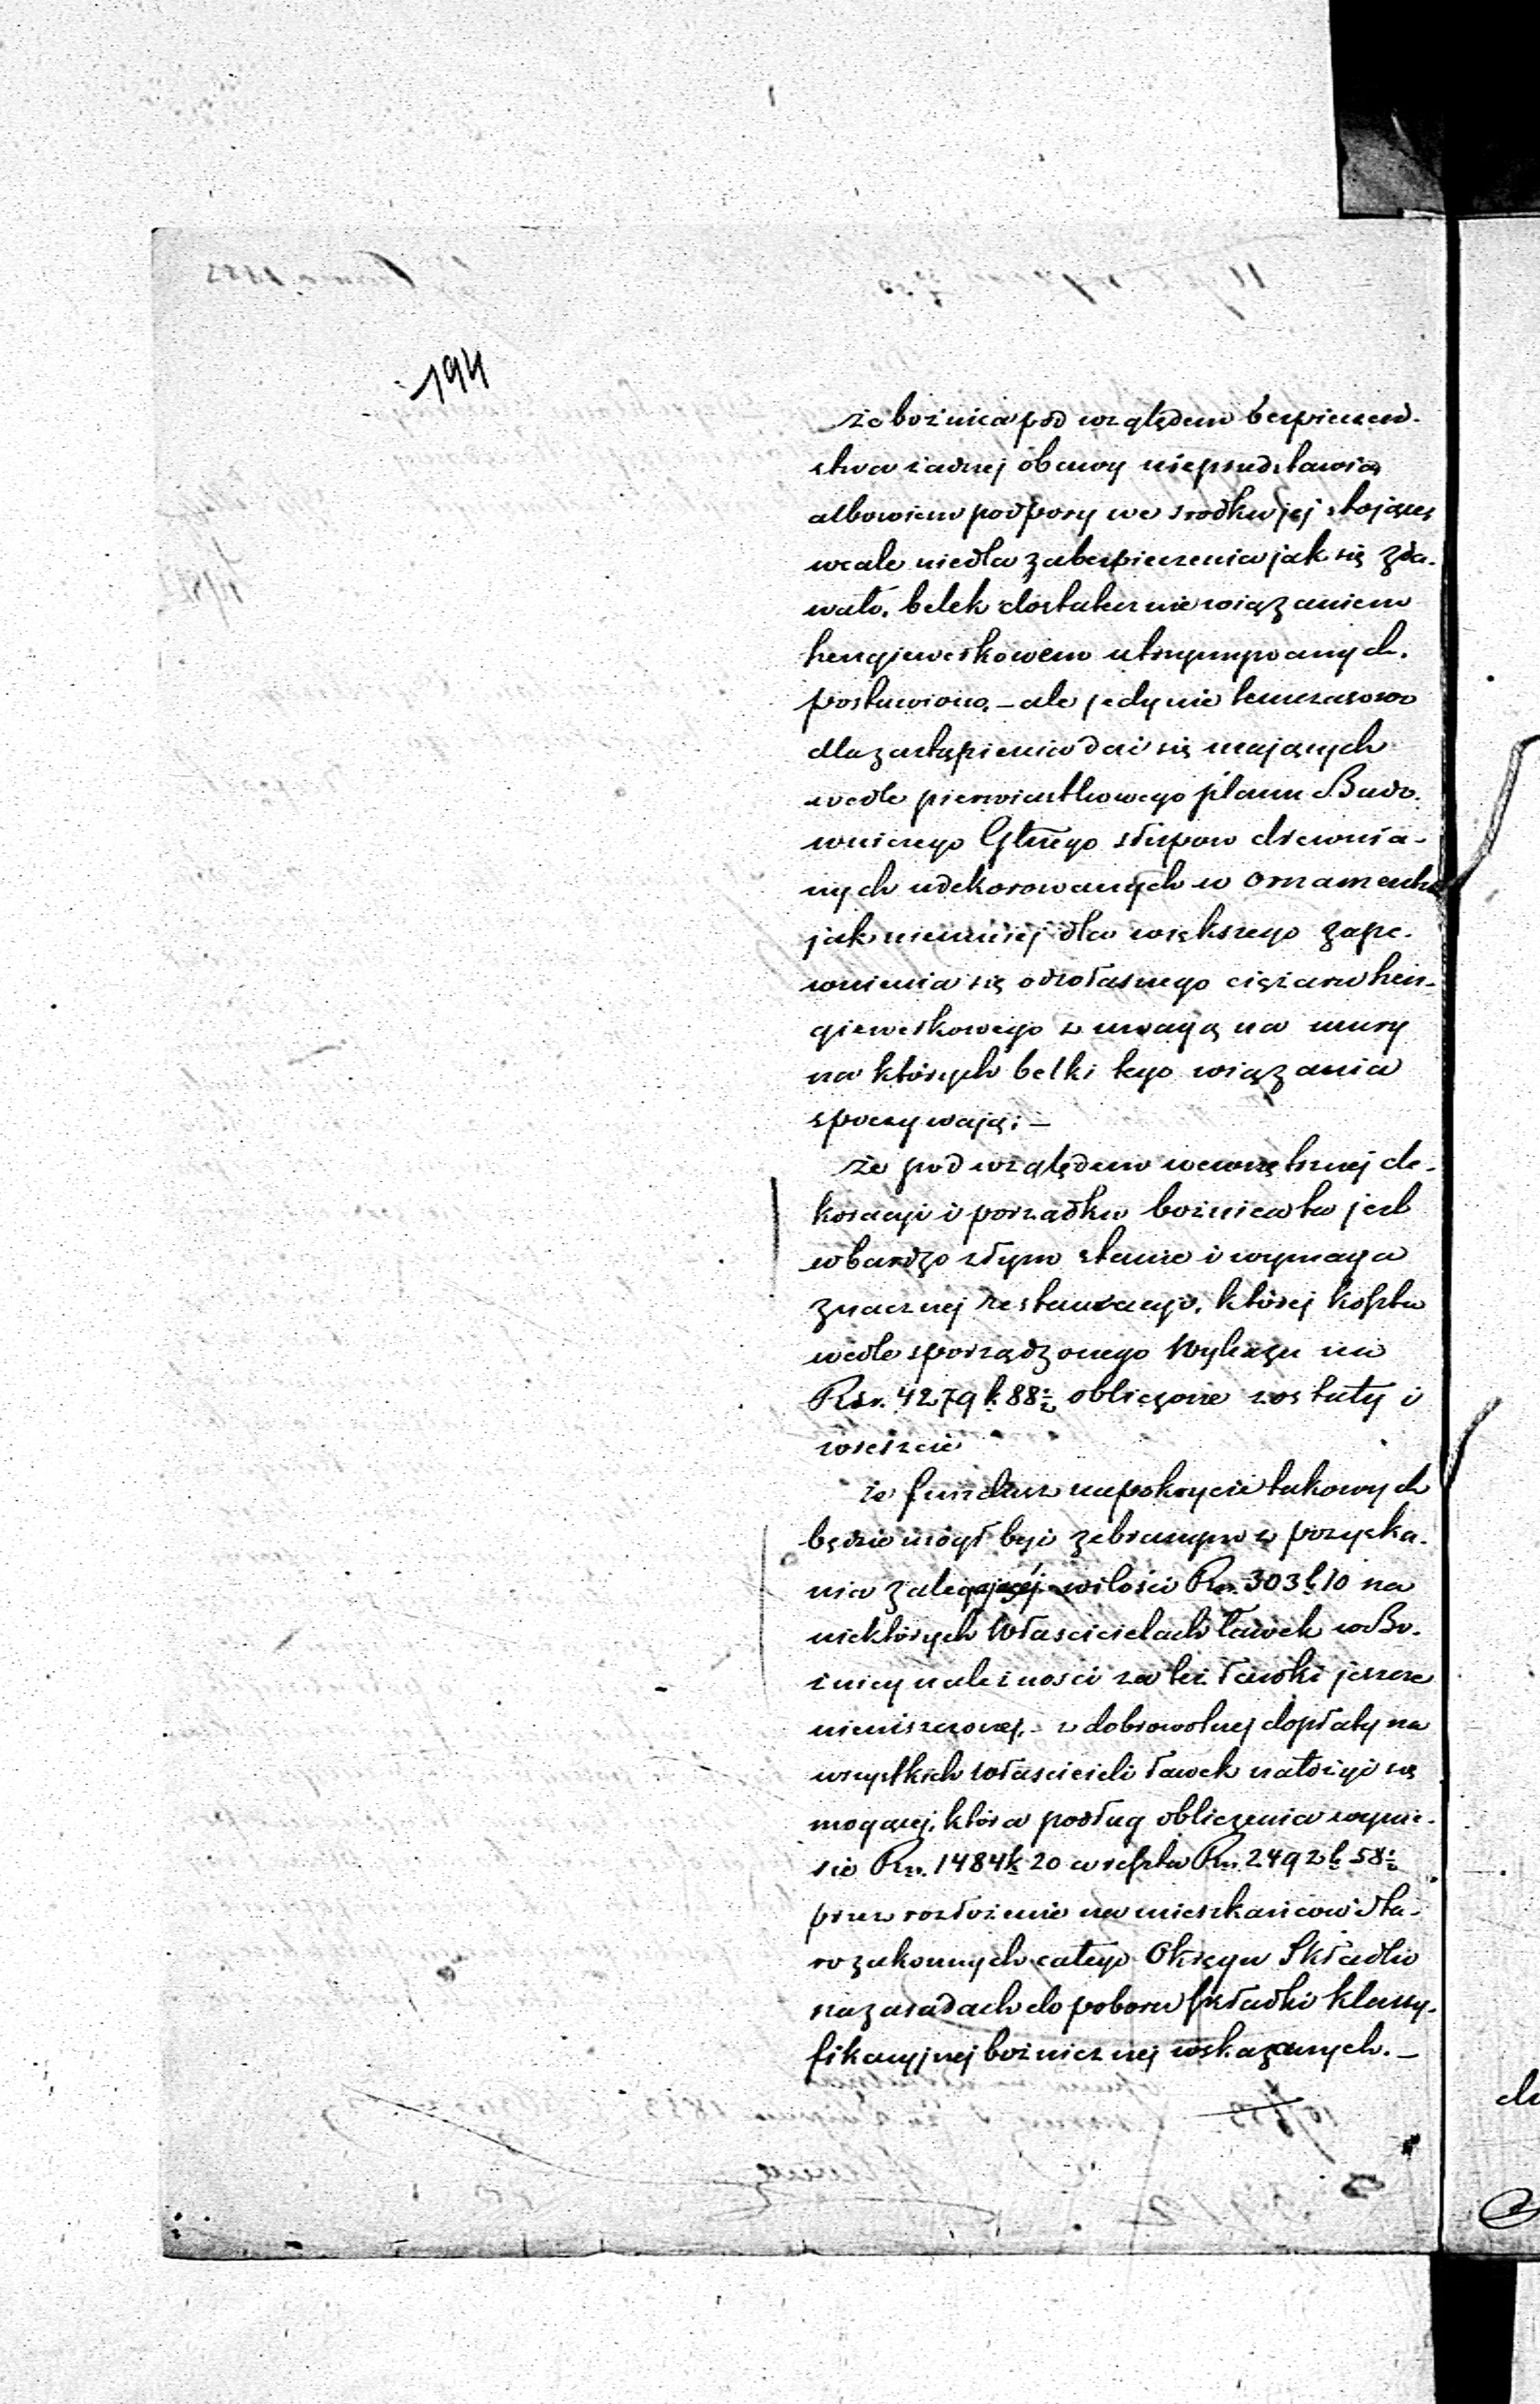 194
że bożnica pod względem bespieczeń-
stwa żadnej obawy nieprzedstawia
albowiem podpory we srodku jej stojące
wcale niedla zabespieczenia jak się zda-
wało, belek dostatecznie wiązaniem
hengiewerkowem utrzymywanych,
postawiono, – ale jedynie temczasowo
dla zastąpienia dać się mających
wedle pierwiastkowego planu Budo-
wniczego Głnego słupow drewnia-
nych udekorowanych w ornamenta
jak niemniej dla większego zape-
wnienia się od własnego ciężaru hen-
giewerkowego z uwagą na mury
na których belki tego wiązania
spoczywają; –
że pod względem wewnętrznej de-
koracyi i porządku bożnica ta jest
w bardzo złym stanie i wymaga
znacznej restauracyi, której koszta
wedle sporządzonego Wykazu na
Rsr. 4279 k 88½ obliczone zostały i
wreszcie
że fundusz na pokrycie takowych
będzie mógł być zebranym z pozyska-
nia zalegającej w ilości Rsr. 303 k 10 na
niektórych Właścicielach ławek w Bo-
żnicy należności za też ławki jeszcze
nieuiszczonej, – z dobrowolnej dopłaty na
wszystkich właścicieli ławek nałożyć się
mogącej, która podług obliczenia wynie-
sie Rsr. 1484 k 20 a reszta Rsr. 2492 k 58½
przez rozłożenie na mieszkańcow Sta-
rozakonnych całego Okręgu Składki
na zasadach do poboru składki klassy-
fikacyjnej bożnicznej wskazanych. –